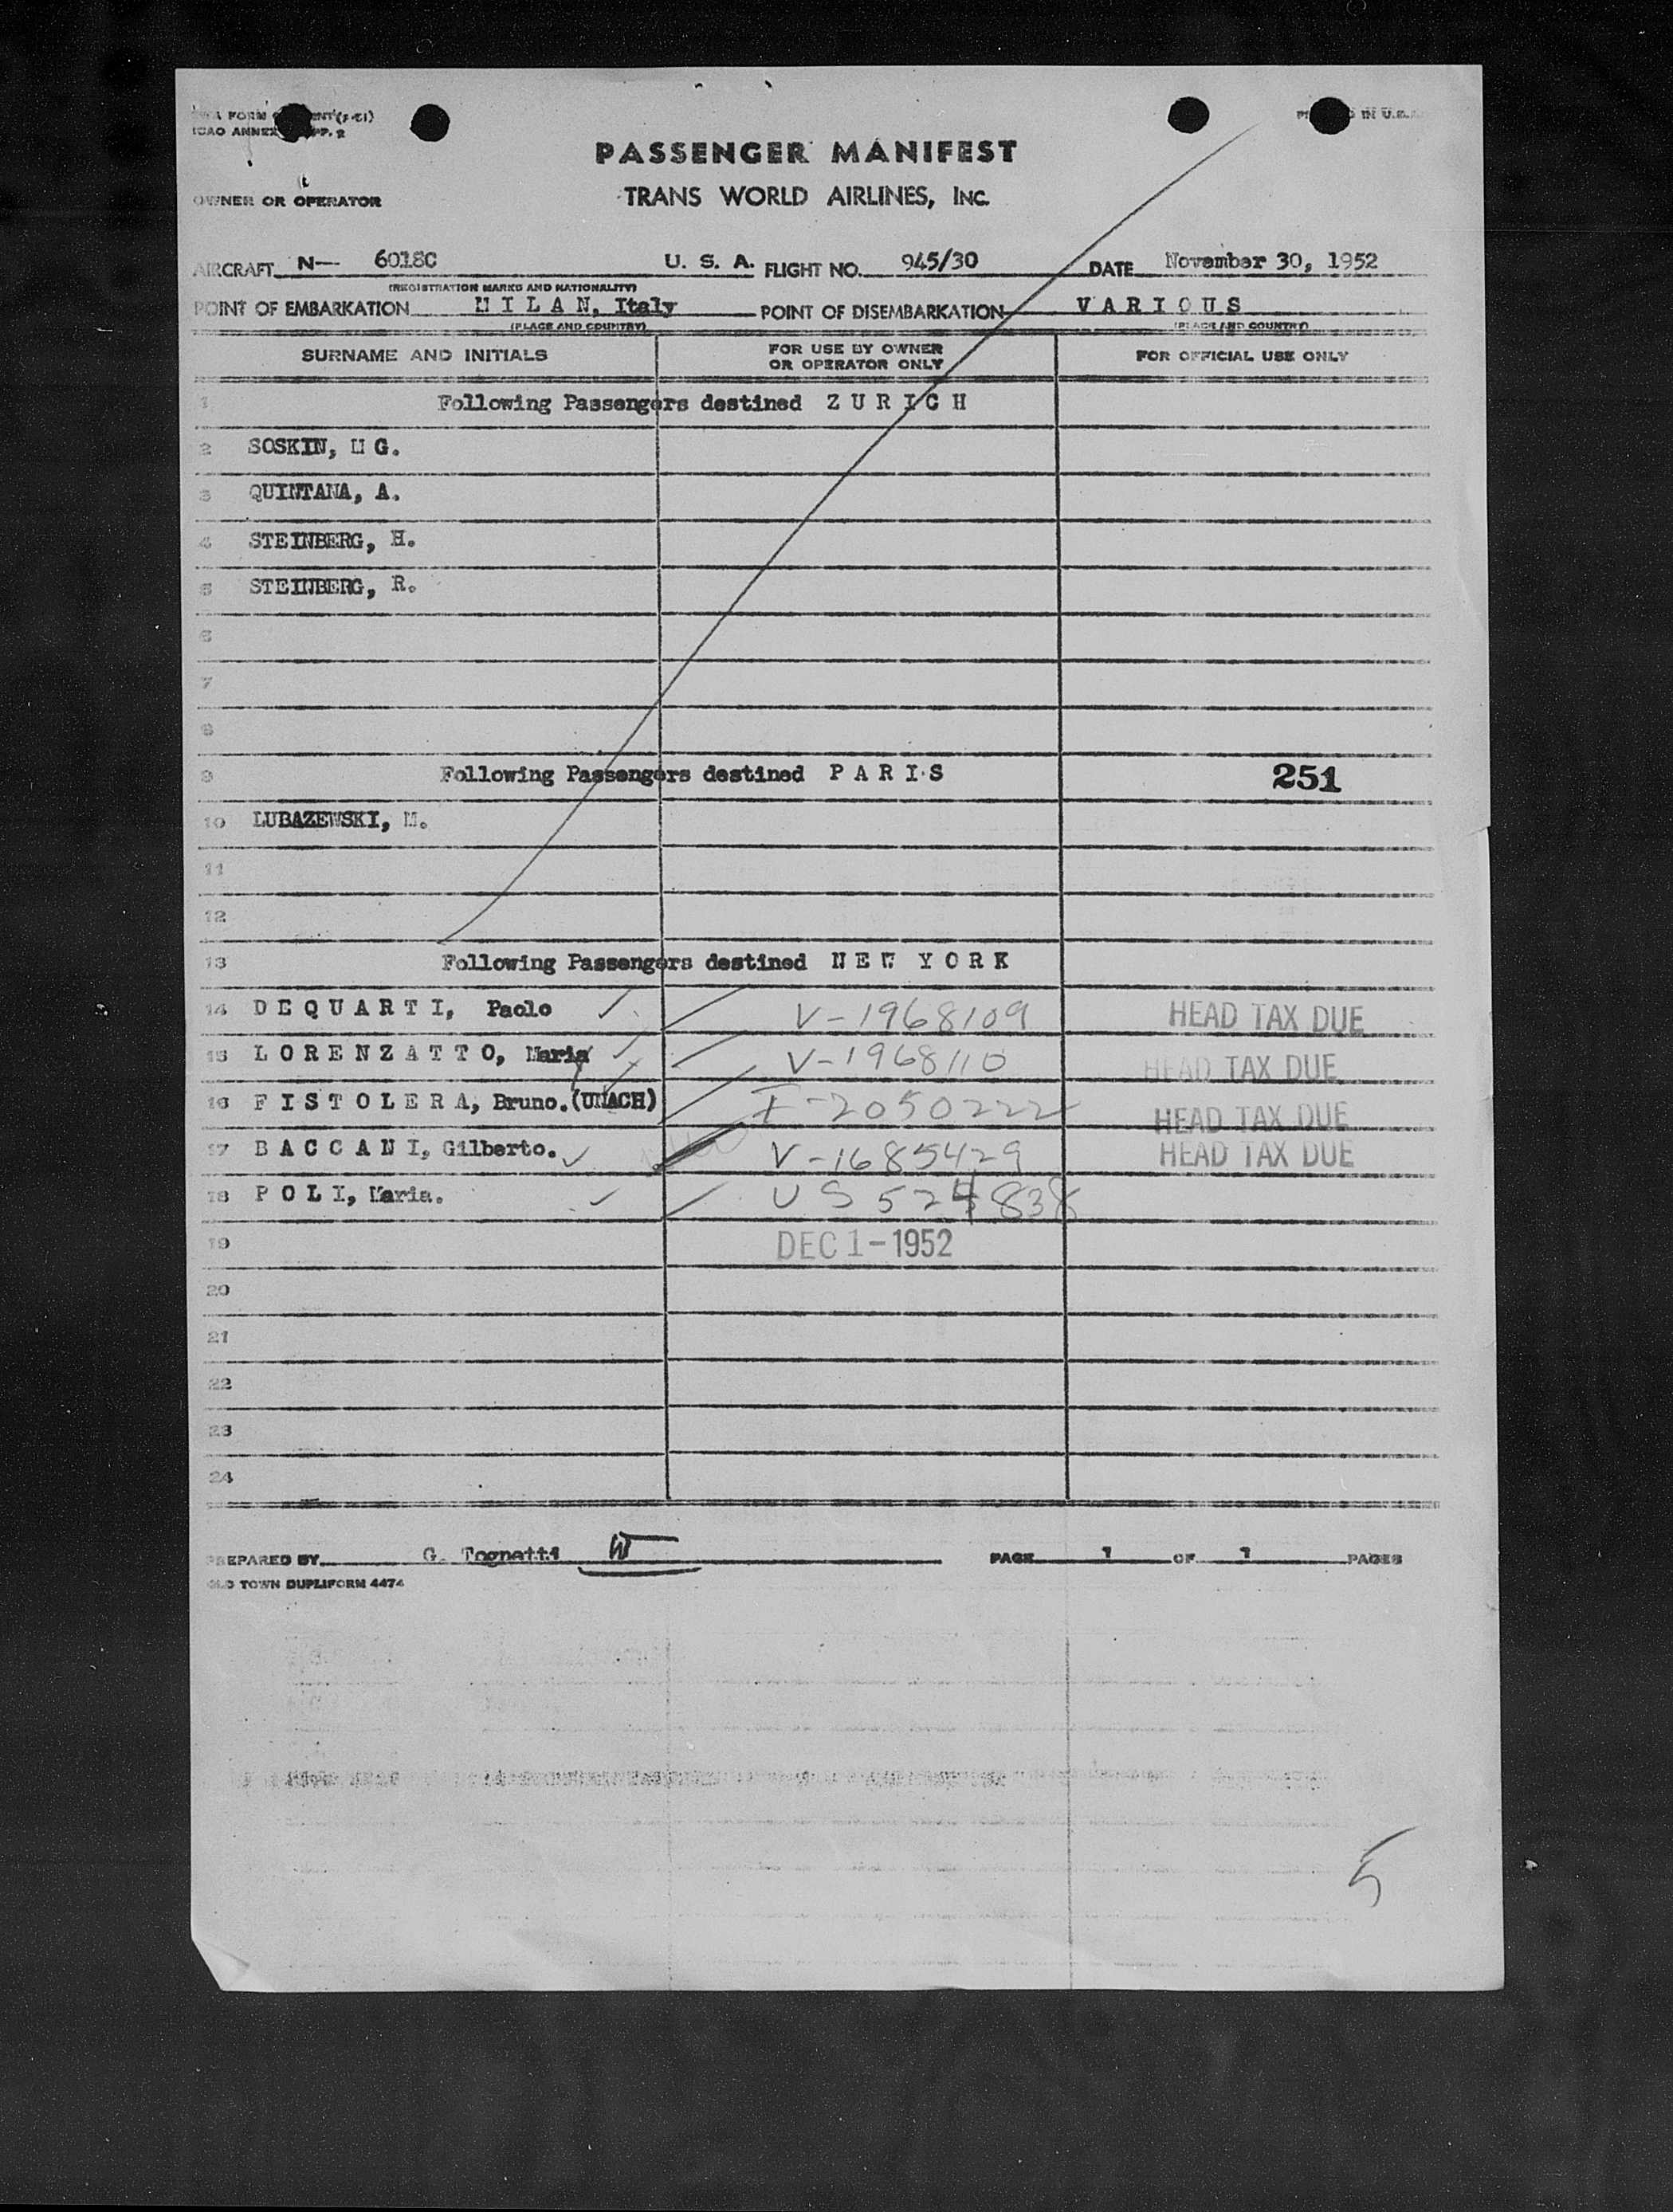 TWA FORM
ICAO ANNEX APP. 2
IN U.S.A.
PASSENGER MANIFEST
OWNER OR OPERATOR
TRANS WORLD AIRLINES, INC.
AIRCRAFT N— 6018C U. S. A. FLIGHT NO. 945/30 DATE November 30, 1952
(REGISTRATION MARKS AND NATIONALITY)
POINT OF EMBARKATION M I L A N, Italy POINT OF DISEMBARKATION V A R I O U S
(PLACE AND COUNTRY) (PLACE AND COUNTRY)
SURNAME AND INITIALS FOR USE BY OWNER OR OPERATOR ONLY FOR OFFICIAL USE ONLY
1 Following Passengers destined Z U R I C H
2 SOSKIN, M G.
3 QUINTANA, A.
4 STEINBERG, H.
5 STEINBERG, R.
6
7
8
9 Following Passengers destined P A R I S 251
10 LUBAZEWSKI, M.
11
12
13 Following Passengers destined N E W Y O R K
14 D E Q U A R T I, Paolo V-1968109 HEAD TAX DUE
15 L O R E N Z A T T O, Maria V-1968110 HEAD TAX DUE
16 F I S T O L E R A, Bruno. I-2050222 HEAD TAX DUE
17 B A C C A N I, Gilberto. V-1685429 HEAD TAX DUE
18 P O L I, Maria. U S 524838
19 DEC 1-1952
20
21
22
23
24
PREPARED BY G. Tognetti PAGE 1 OF 1 PAGES
OLD TOWN DUPLIFORM 4474
5